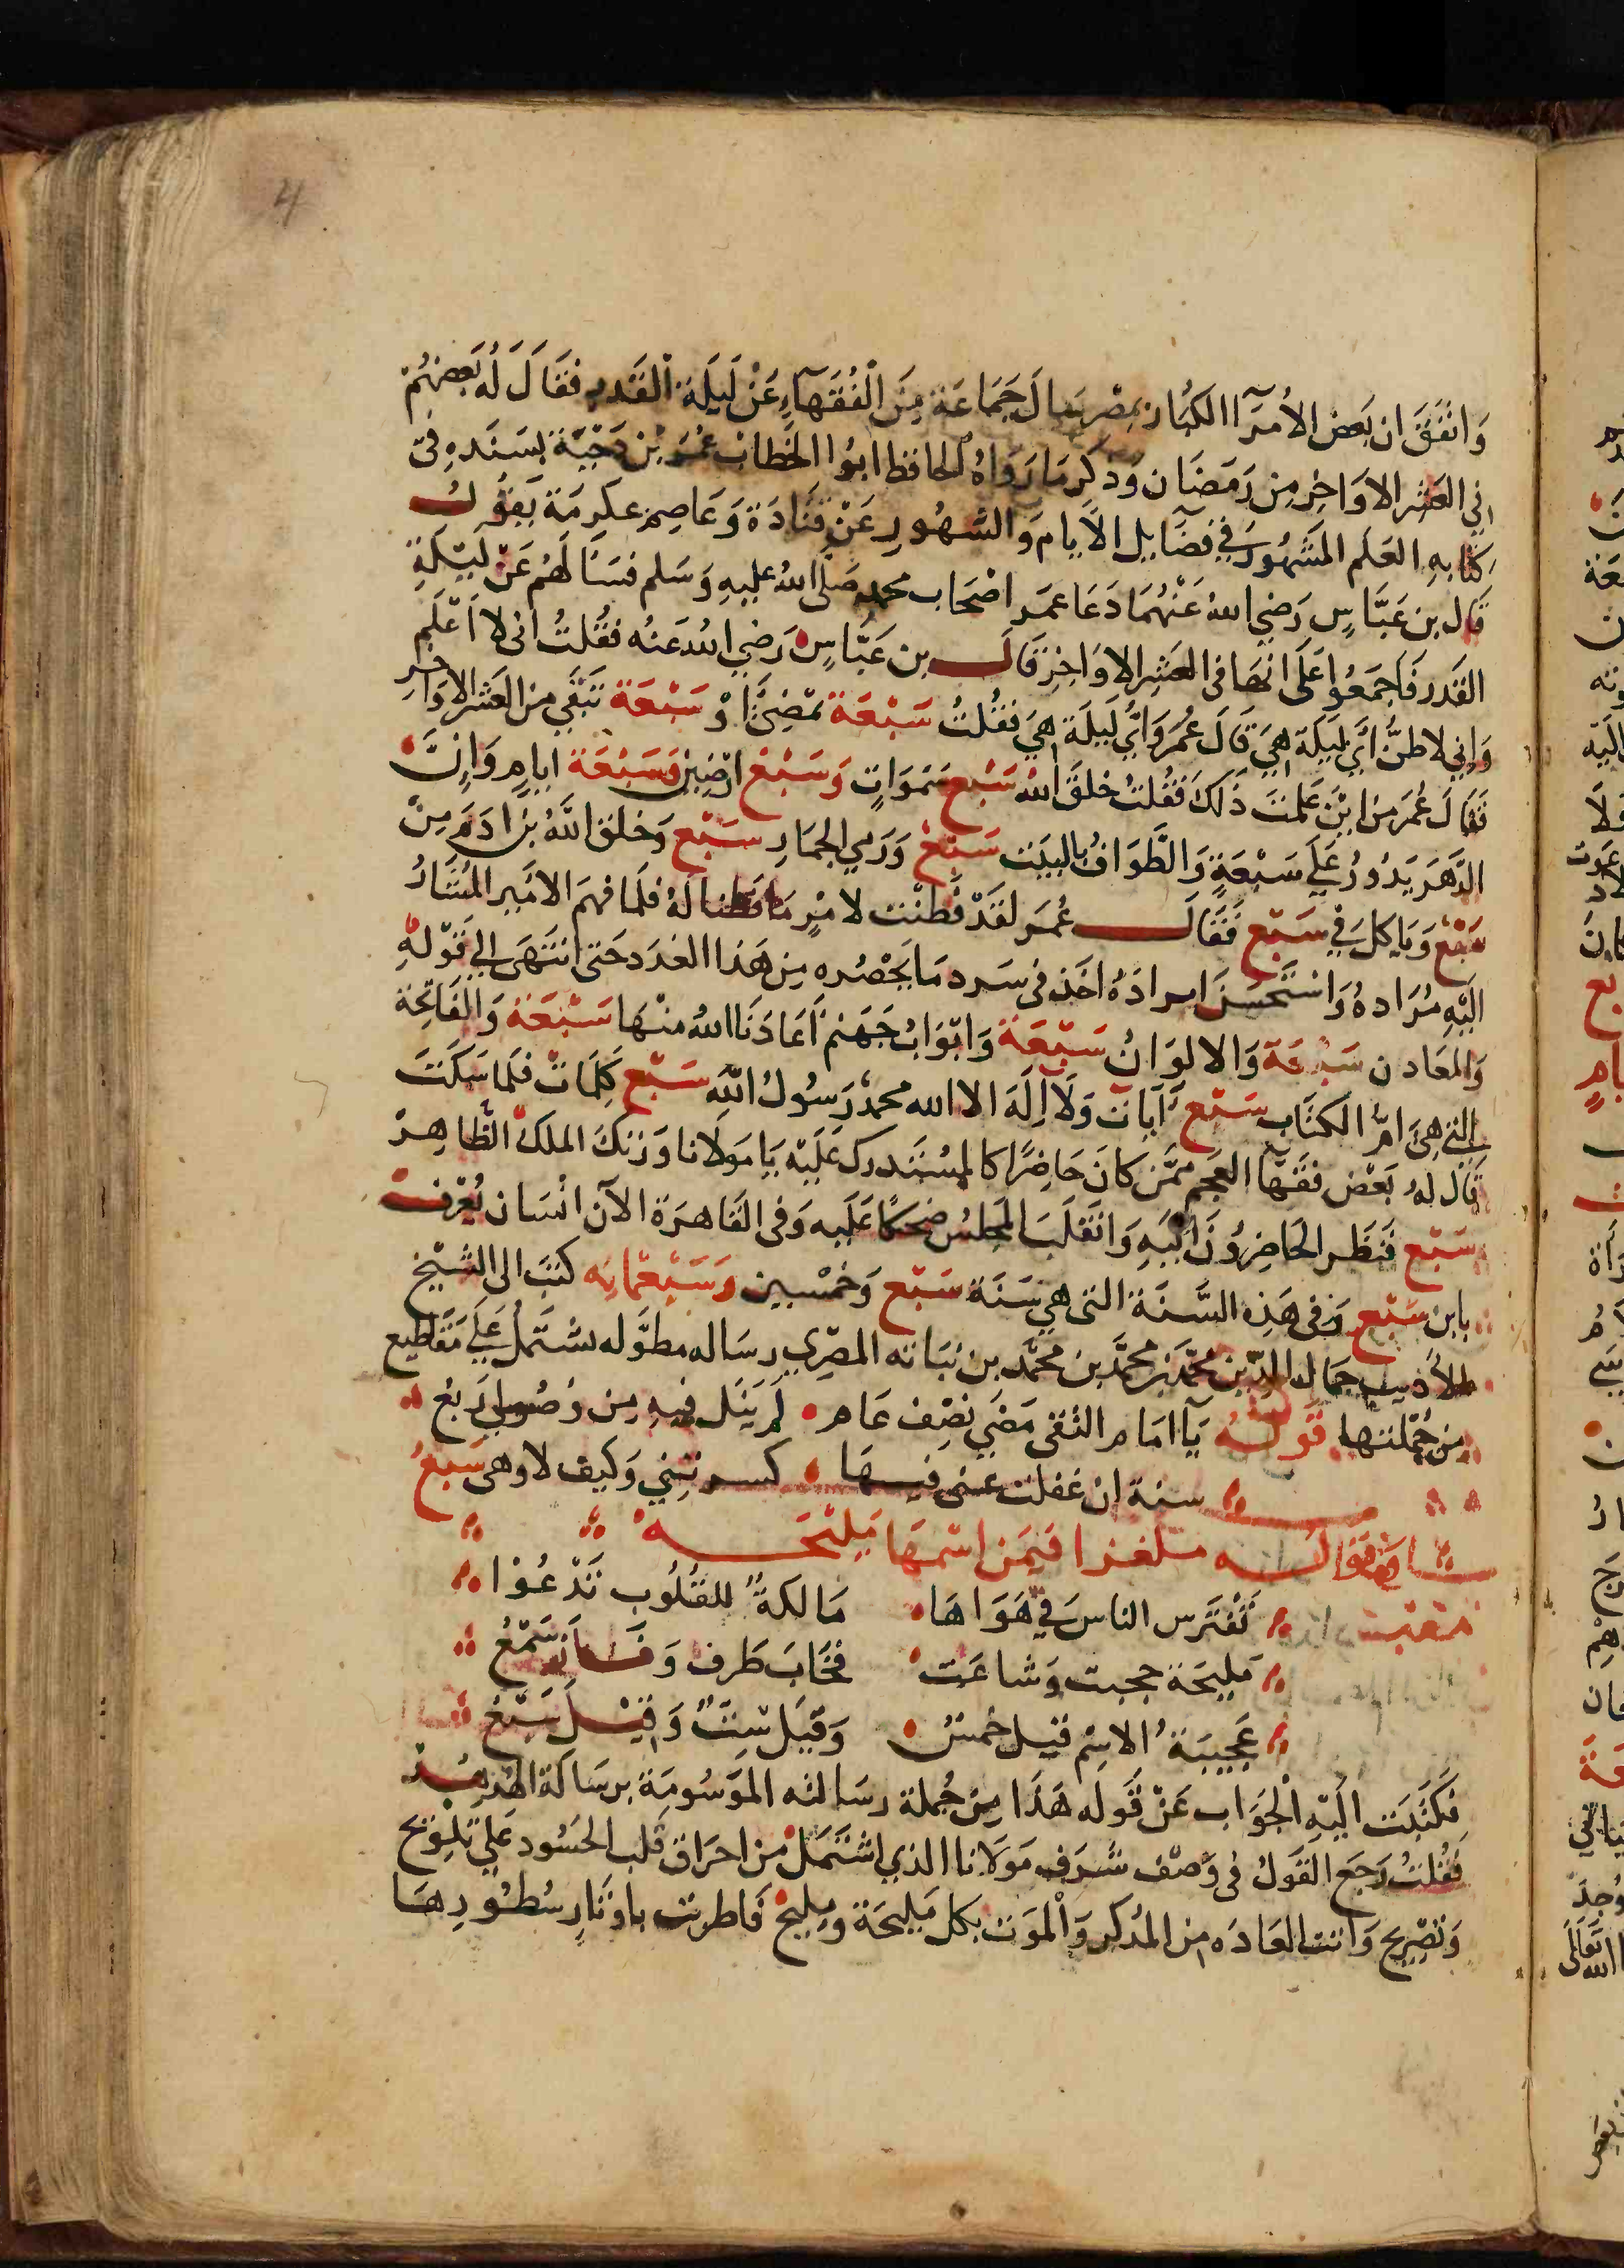 4
وَاتفَقَ ان بَعض الأمَرَآ الكبَار بمصْر سَال جَمَاعَة مِنَ الْفُقَهَآءِ عَنْ لَيلَة القَدر فقَالَ لهُ بَعضهُم
في العَشر الاوَاخِر مِن رَمَضَان وَذكر مَا رَوَاهُ الحافظ ابوُا الخطاب عُمَر بْن دَحْيَة بسَنَدِهِ في
كتابهِ العَلَم المَشهُور في فضَايل الاَيام وَالشهُور عَنْ قتَادَة وَعَاصِم عكرمَة يَقوُل
قَال بن عَبَّاسٍ رَضيَ اللهُ عَنْهُمَا دَعَا عمَر اصْحَاب محمد صَلى اللهُ عليهِ وَسَلم فسَألَهُم عَنْ لَيْلَةِ
القَدر فَاجمَعُوا عَلَى انهَا فى العَشر الاوَاخِر قَال بن عَبَّاس رَضيَ اللهُ عَنْه فقُلتُ انى لا اَعْلَم
وَاني لاظنُّ ايُّ لَيلَة هيَ قَالَ عُمَر وَايُّ لَيلَة هيَ فقُلتُ سَبْعَة تمْضِيْ اوْ سَبْعَة تَبْقَي مِنَ العَشر الاوَاخر
فَقَالَ عُمَر مِن ايْنَ عَلمتَ ذَلكَ فقُلتُ خلقَ اللهُ سَبْع سَمَوَاتٍ وَسَبْع ارَضِين وَسَبْعَة ايامٍ وَانَّ
الدَّهَر يَدُورُ عَلَى سَبْعَةٍ وَالطَّوَافُ بالبيَت سَبْعٌ وَرَمي الجمَارِ سَبْع وَخلق اللهُ بن ادَمَ مِنْ
سَبْع وَيَاكل في سَبْع فَقَال عُمَر لقَدْ فَطنْت لامْرٍ مَا فَطنا لَهُ فلمَا فهمَ الامَير المُشَارُ
الَيْهِ مُرَادهُ وَاسْتَحسَنَ ايرادَهُ اخَذ فى سَرد مَا يَحْصُره مِن هَذا العَدَد حَتى انتَهَى الي قَوْلهِ
وَالمعَادن سَبْعَة وَالالوَانُ سَبْعَة وَابْوَابُ جَهَنم اَعَاذنَا اللهُ منهَا سَبْعَة وَالفَاتحَة
التي هيَ امُّ الكتَاب سَبْع آيَات وَلَا اِلَهَ الا الله محمدٌ رَسُولُ اللهِ سَبْع كلمَات فلمَا سَكَتَ
قال لهُ بَعْض فقهَا العَجم ممَّن كانَ حَاضِرًا كالمسْتَدرك عَلَيْه يَا مَولانا وَزنكَ الملك الظاهِر
سَبْع فنَظَر الحَاضِرُونَ الَيهِ وَانقَلَبَ المجلس ضحكًا عَلَيه وَفى القَاهرَة الآن انْسَان يُعْرف
بابن سَبْع وَفى هَذِه السَّنَة التى هي سَنَة سَبْع وَخمْسين وَسَبْعمَائه كتبَ الى الشَّيْخ
الأديب جمَال الدِّين محمَّد بن محمَّد بن محمَّد بن نبَاته المصْرى رسَاله مطوَّله تشتَمل عَلَى مَقَاطيع
مِن جُمْلتها قَولهُ يَا امَام التُقى مَضَي نصْف عَام لم يَنَل فيهِ مِن وُصُولي رَبْع
سنة ان غفلت عنى فيهَا كسرتني وَكيف لا وهى سَبْعُ
ملغزا فيمَن اسْمهَا مَليْحَه
تَفْتَرس الناسَ في هَوَاهَا مَالكةٌ للقلُوب تَدْعُوا
مَليحَة حجبت وَشاعَت فخابَ طَرف وَفَاز سَمْعُ
عَجيبَةُ الاسْم قيل خمسٌ وَقيَل سِتٌ وَقيْل سَبْعُ
فكتَبت الَيْهِ الْجوَاب عَنْ قَوله هَذَا مِن جُملة رسَالته المَوسُومَة برسَالَة الهُدهُد
فقُلتُ رَجَع القَولُ فى وَصْف شرَف مَوَلانا الذي اشتَمَل من احرَاق قَلب الحَسُود عَلى تَلْويح
وَتصْريح وَاتت العَادَه مِن المذكر وَالمؤنث بكل مَليحَة وَمليح فَاطربت باوتارِ سُطوُرِهَا